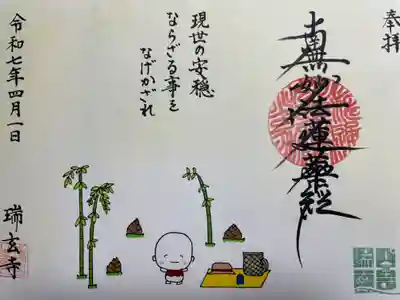 奉拝
南無妙法蓮華経
現世の安穏
ならざる事を
なげかざれ
令和七年四月一日
瑞玄寺